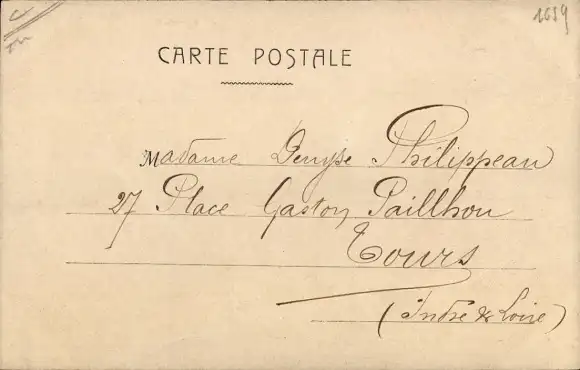 1659
CARTE POSTALE
Madame Denyse Philippeau
27 Place Gaston Pailhou
Tours
(Indre & Loire)